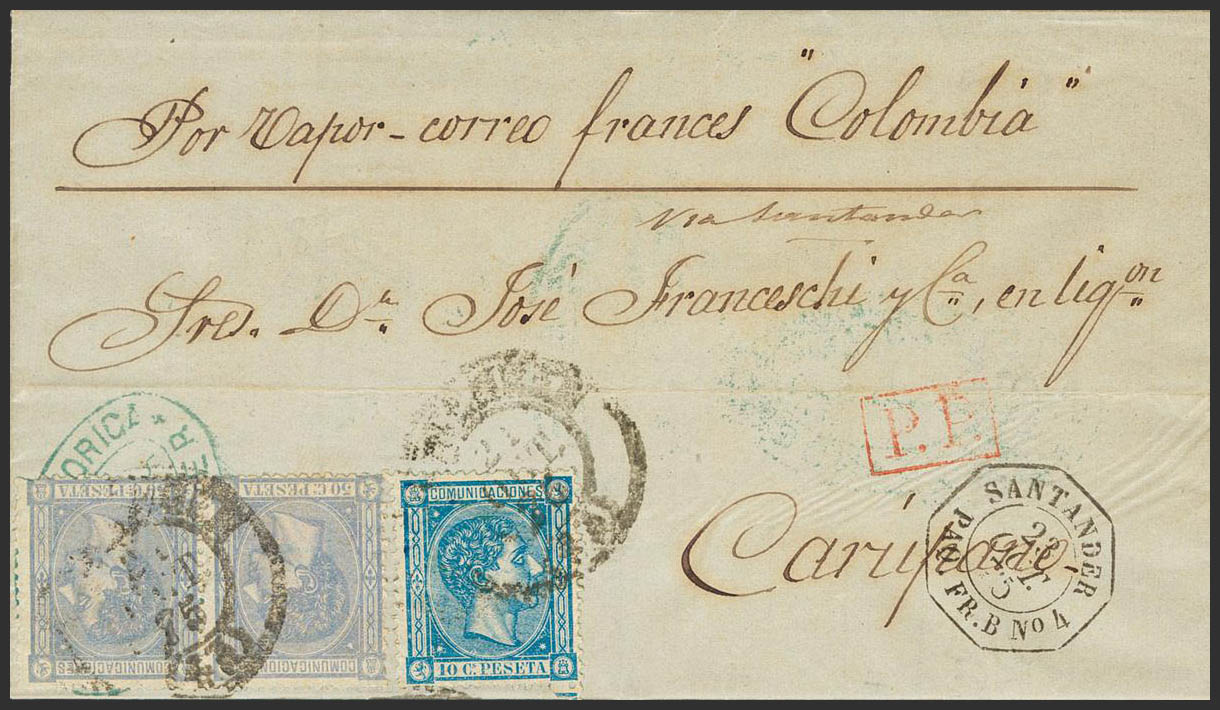 Por Vapor-correo frances "Colombia"
Via Santander
Sres. Dn. José Franceschi y Ca., en liqon.
P.F.
Carúpano
SANTANDER
22 OCT. 75
PAQ. FR. B No 4
COMUNICACIONES
10 C. PESETA
50 C. PESETA
COMUNICACIONES
50 C. PESETA
COMUNICACIONES